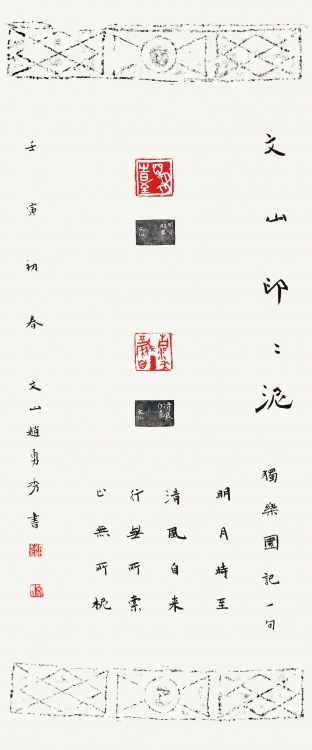 文山印〻泥 獨樂園記一句
明月時至
清風自来
行無所牽
止無所柅
壬寅初春 文山趙勇秀書